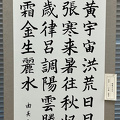 黃宇宙洪荒日月
張寒来暑往秋収
歲律呂調陽雲騰
霜金生麗水
由美